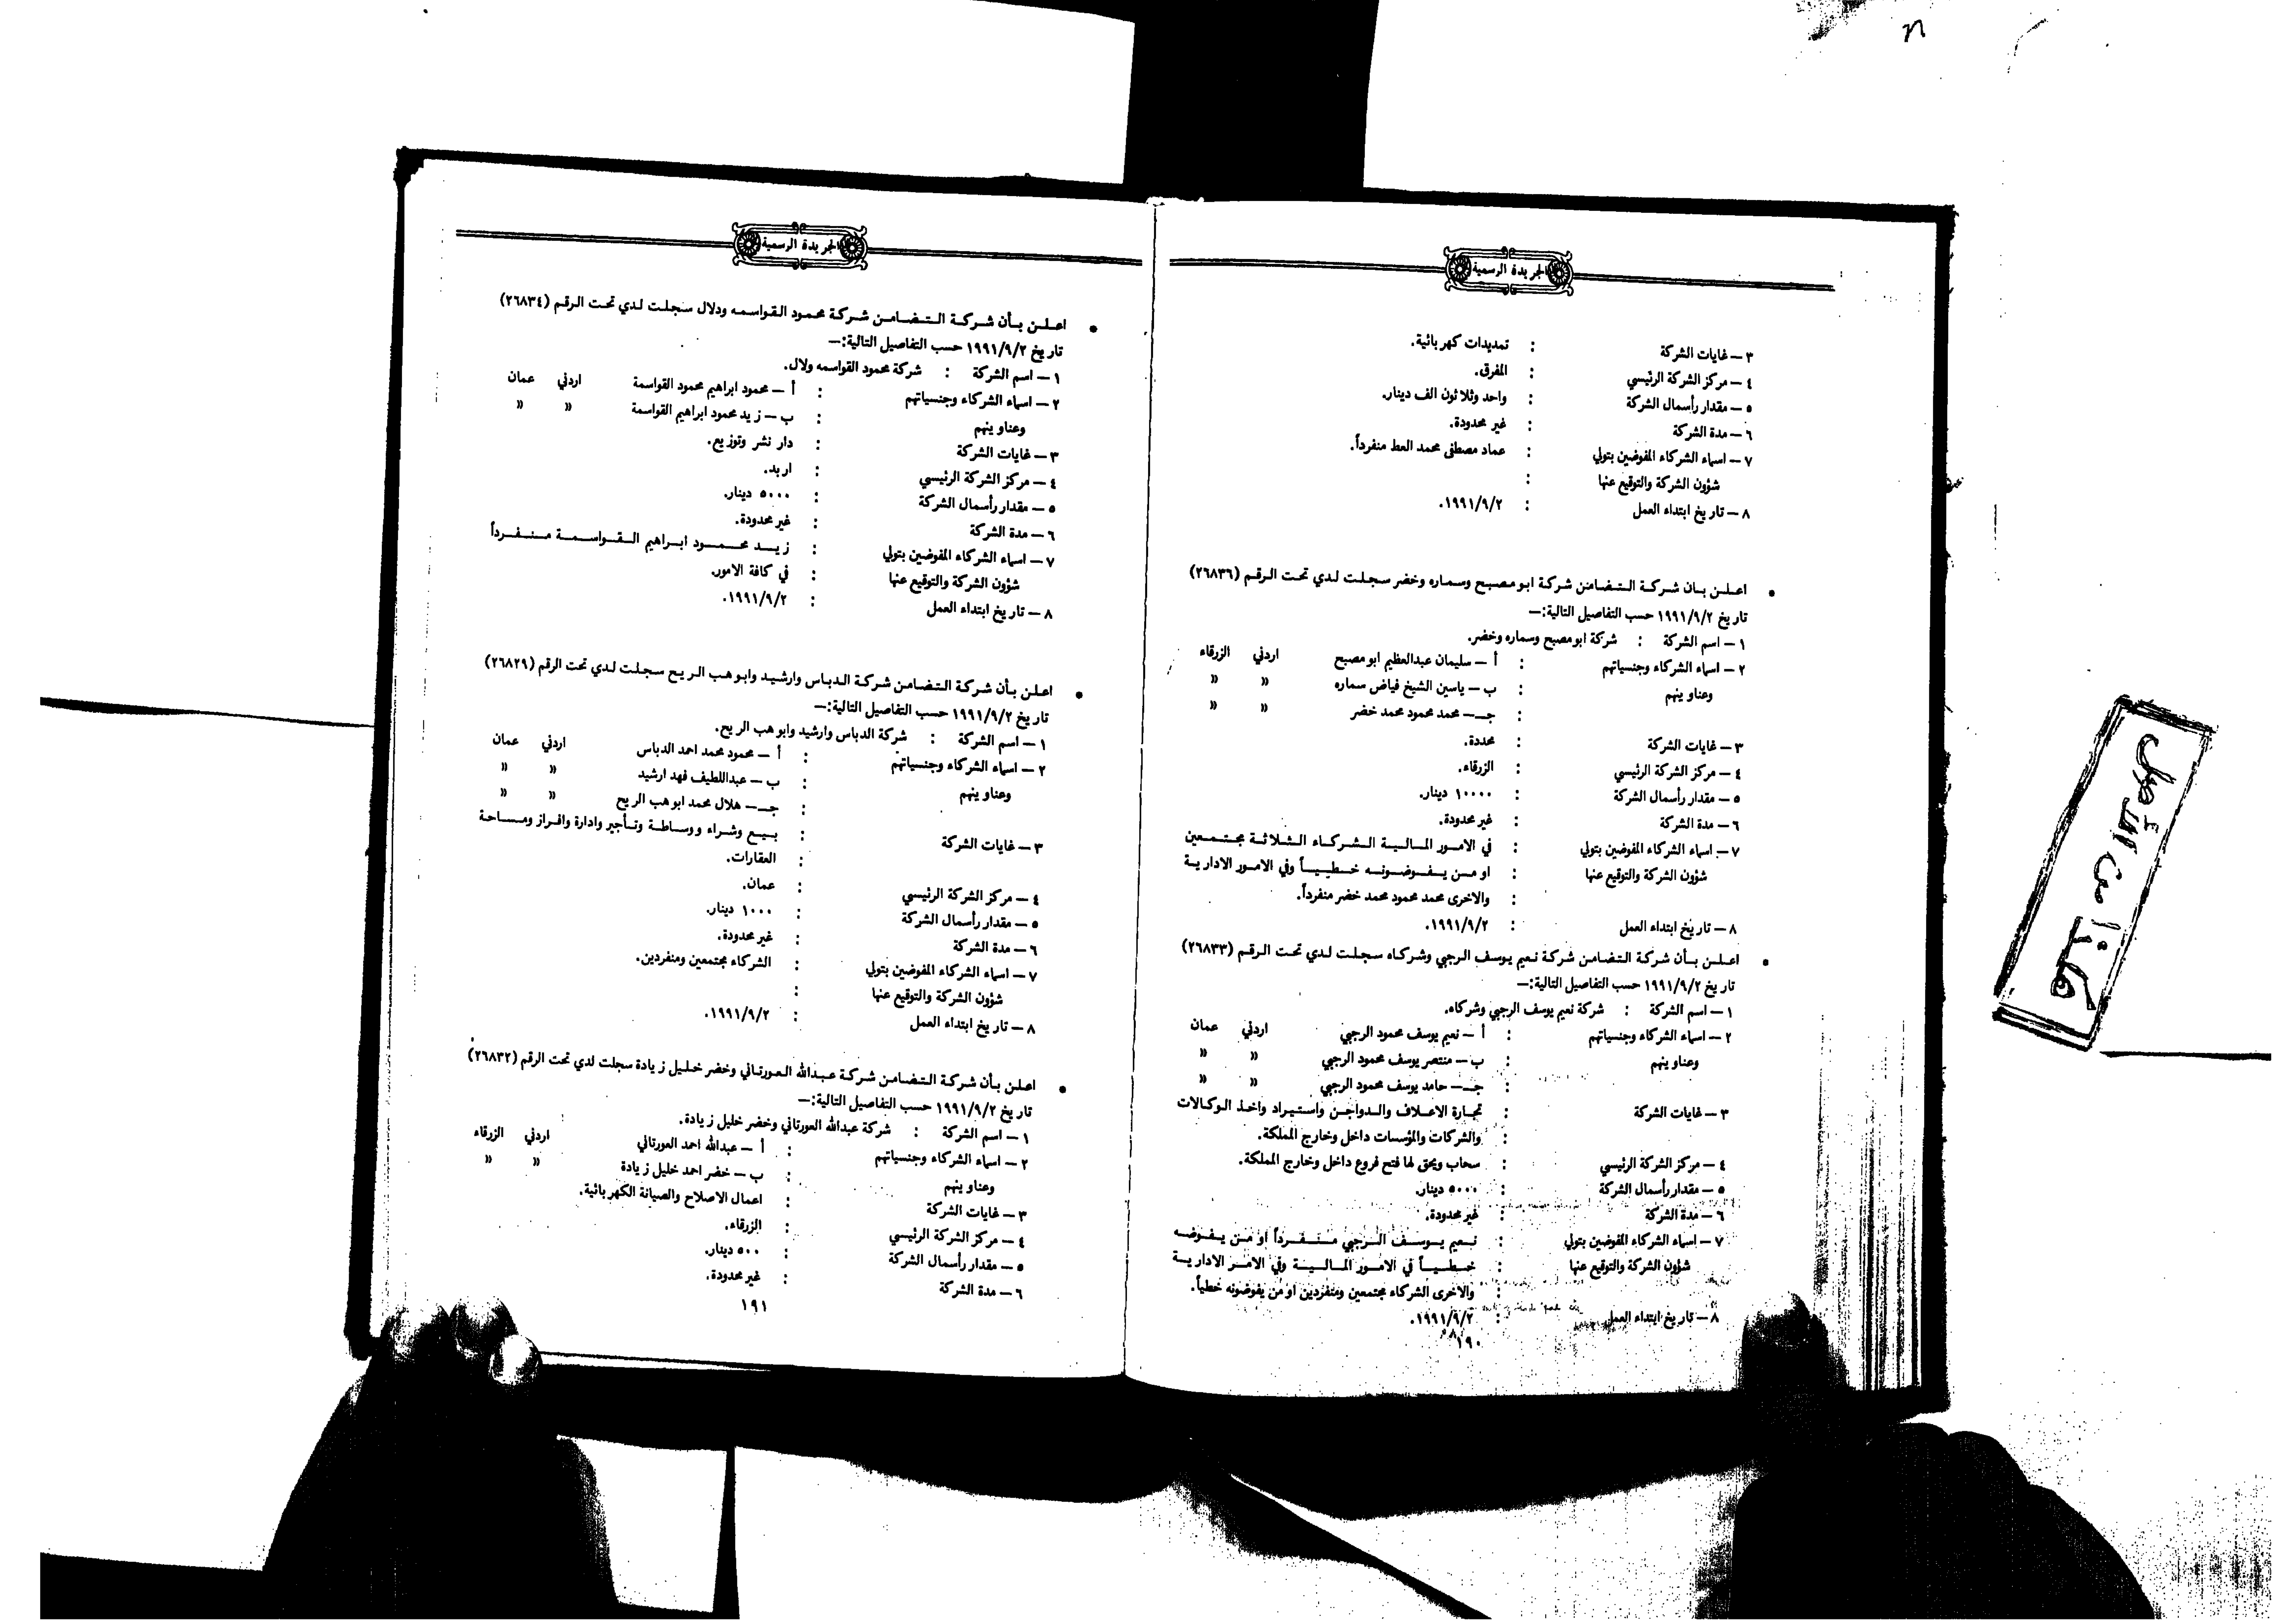 الجريدة الرسمية
٣ — غايات الشركة : تمديدات كهربائية.
٤ — مركز الشركة الرئيسي : المفرق.
٥ — مقدار رأسمال الشركة : واحد وثلاثون الف دينار.
٦ — مدة الشركة : غير محدودة.
٧ — اسماء الشركاء المفوضين بتولي : عماد مصطفى محمد العط منفرداً.
شؤون الشركة والتوقيع عنها :
٨ — تاريخ ابتداء العمل : ١٩٩١/٩/٢.
• اعلن بأن شركة التضامن شركة ابو مصبح وسماره وخضر سجلت لدي تحت الرقم (٢٦٨٣٦)
تاريخ ١٩٩١/٩/٢ حسب التفاصيل التالية:—
١ — اسم الشركة : شركة ابو مصبح وسماره وخضر.
٢ — اسماء الشركاء وجنسياتهم : أ — سليمان عبدالعظيم ابو مصبح اردني الزرقاء
وعناوينهم : ب — ياسين الشيخ فياض سماره » »
: جـ — محمد محمود محمد خضر » »
٣ — غايات الشركة : محددة.
٤ — مركز الشركة الرئيسي : الزرقاء.
٥ — مقدار رأسمال الشركة : ١٠٠٠٠ دينار.
٦ — مدة الشركة : غير محدودة.
٧ — اسماء الشركاء المفوضين بتولي : في الامور المالية الشركاء الثلاثة مجتمعين
شؤون الشركة والتوقيع عنها : او من يفوضونه خطيـاً وفي الامور الادارية
: والاخرى محمد محمود محمد خضر منفرداً.
٨ — تاريخ ابتداء العمل : ١٩٩١/٩/٢.
• اعلن بأن شركة التضامن شركة نعيم يوسف الرجبي وشركاه سجلت لدي تحت الرقم (٢٦٨٣٣)
تاريخ ١٩٩١/٩/٢ حسب التفاصيل التالية:—
١ — اسم الشركة : شركة نعيم يوسف الرجبي وشركاه.
٢ — اسماء الشركاء وجنسياتهم : أ — نعيم يوسف محمود الرجبي اردني عمان
وعناوينهم : ب — منتصر يوسف محمود الرجبي » »
: جـ — حامد يوسف محمود الرجبي » »
٣ — غايات الشركة : تجارة الاعلاف والدواجن واستيراد واخذ الوكالات
: والشركات والمؤسسات داخل وخارج المملكة.
٤ — مركز الشركة الرئيسي : سحاب ويحق لها فتح فروع داخل وخارج المملكة.
٥ — مقدار رأسمال الشركة : ٥٠٠٠ دينار.
٦ — مدة الشركة : غير محدودة.
٧ — اسماء الشركاء المفوضين بتولي : نعيم يوسف الرجبي منفرداً او من يفوضه
شؤون الشركة والتوقيع عنها : خطيـاً في الامور المالية وفي الامر الادارية
: والاخرى الشركاء مجتمعين ومنفردين او من يفوضونه خطياً.
٨ — تاريخ ابتداء العمل : ١٩٩١/٩/٢.
١٩٠
الجريدة الرسمية
• اعلن بأن شركة التضامن شركة محمود القواسمه ودلال سجلت لدي تحت الرقم (٢٦٨٣٤)
تاريخ ١٩٩١/٩/٢ حسب التفاصيل التالية:—
١ — اسم الشركة : شركة محمود القواسمه ولال.
٢ — اسماء الشركاء وجنسياتهم : أ — محمود ابراهيم محمود القواسمة اردني عمان
وعناوينهم : ب — زيد محمود ابراهيم القواسمة » »
٣ — غايات الشركة : دار نشر وتوزيع.
٤ — مركز الشركة الرئيسي : اربد.
٥ — مقدار رأسمال الشركة : ٥٠٠٠ دينار.
٦ — مدة الشركة : غير محدودة.
٧ — اسماء الشركاء المفوضين بتولي : زيد محمود ابراهيم القواسمة منفرداً
شؤون الشركة والتوقيع عنها : في كافة الامور.
٨ — تاريخ ابتداء العمل : ١٩٩١/٩/٢.
• اعلن بأن شركة التضامن شركة الدباس وارشيد وابو هب الريح سجلت لدي تحت الرقم (٢٦٨٢٩)
تاريخ ١٩٩١/٩/٢ حسب التفاصيل التالية:—
١ — اسم الشركة : شركة الدباس وارشيد وابو هب الريح.
٢ — اسماء الشركاء وجنسياتهم : أ — محمود محمد احمد الدباس اردني عمان
وعناوينهم : ب — عبداللطيف فهد ارشيد » »
: جـ — هلال محمد ابو هب الريح » »
٣ — غايات الشركة : بيع وشراء ووساطة وتأجير وادارة وافراز ومساحة
: العقارات.
٤ — مركز الشركة الرئيسي : عمان.
٥ — مقدار رأسمال الشركة : ١٠٠٠ دينار.
٦ — مدة الشركة : غير محدودة.
٧ — اسماء الشركاء المفوضين بتولي : الشركاء مجتمعين ومنفردين.
شؤون الشركة والتوقيع عنها :
٨ — تاريخ ابتداء العمل : ١٩٩١/٩/٢.
• اعلن بأن شركة التضامن شركة عبدالله العورتاني وخضر خليل زيادة سجلت لدي تحت الرقم (٢٦٨٣٢)
تاريخ ١٩٩١/٩/٢ حسب التفاصيل التالية:—
١ — اسم الشركة : شركة عبدالله العورتاني وخضر خليل زيادة.
٢ — اسماء الشركاء وجنسياتهم : أ — عبدالله احمد العورتاني اردني الزرقاء
وعناوينهم : ب — خضر احمد خليل زيادة » »
٣ — غايات الشركة : اعمال الاصلاح والصيانة الكهربائية.
٤ — مركز الشركة الرئيسي : الزرقاء.
٥ — مقدار رأسمال الشركة : ٥٠٠ دينار.
٦ — مدة الشركة : غير محدودة.
١٩١
هكذا من الأصل